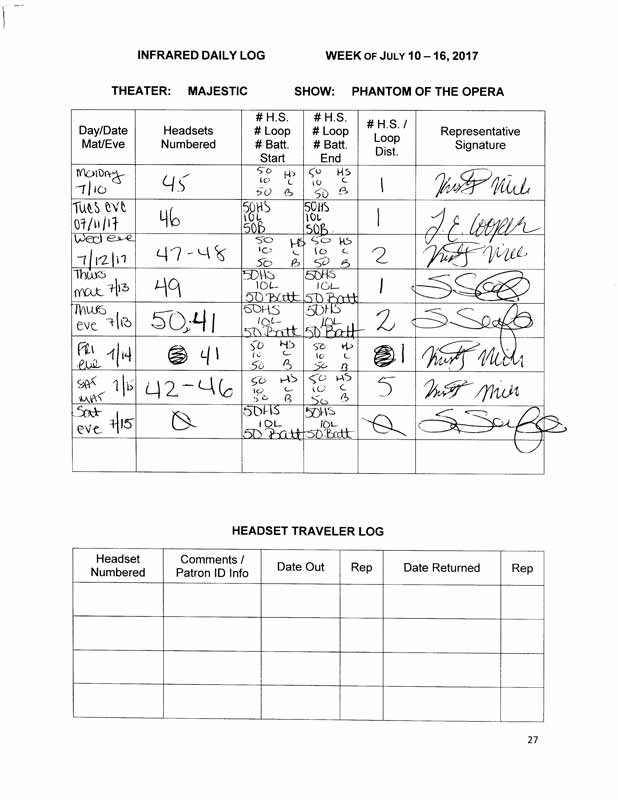 INFRARED DAILY LOG WEEK OF JULY 10 – 16, 2017
THEATER: MAJESTIC SHOW: PHANTOM OF THE OPERA
Day/Date Mat/Eve Headsets Numbered # H.S. # Loop # Batt. Start # H.S. # Loop # Batt. End # H.S. / Loop Dist. Representative Signature
MONDAY 7/10 45 50 HS 10 L 50 B 50 HS 10 L 50 B 1
Tues eve 07/11/17 46 50HS 10L 50B 50HS 10L 50B 1 J.E. Cooper
Wed eve 7/12/17 47-48 50 HS 10 L 50 B 50 HS 10 L 50 B 2
Thurs mat 7/13 49 50HS 10L 50 Batt 50HS 10L 50 Batt 1
Thurs eve 7/13 50,41 50HS 10L 50 Batt 50HS 10L 50 Batt 2
FRI eve 7/14 41 50 HS 10 L 50 B 50 HS 10 L 50 B 1
SAT MAT 7/15 42-46 50 HS 10 L 50 B 50 HS 10 L 50 B 5
Sat eve 7/15 0 50HS 10L 50 Batt 50HS 10L 50 Batt 0
HEADSET TRAVELER LOG
Headset Numbered Comments / Patron ID Info Date Out Rep Date Returned Rep
27